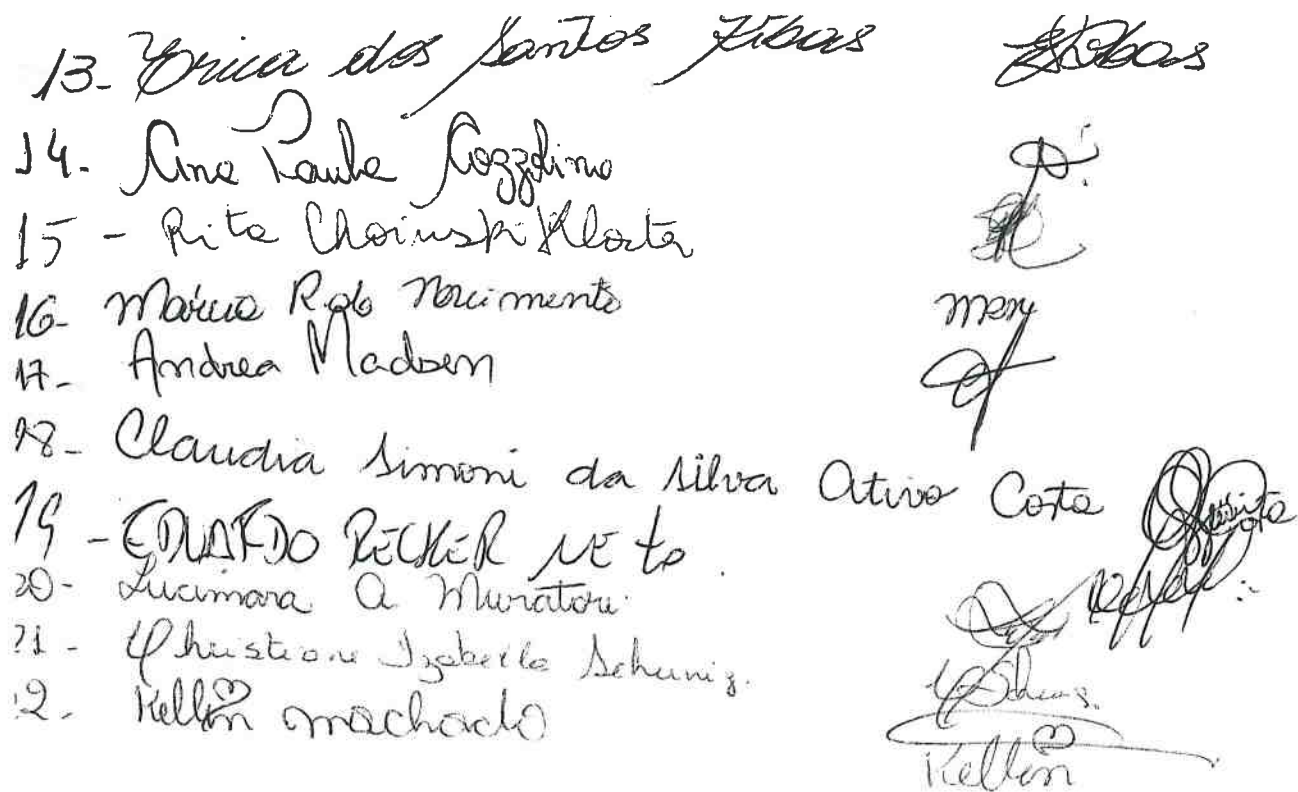 13- Erica dos Santos Ribas
14- Ana Paula Cozzolino
15 - Rita Choinski Klosta
16- Márcia R. do Nascimento
17- Andrea Madsen
18- Claudia Simoni da Silva Ativo Costa
19 - EDUARDO BECKER NEto.
20- Lucimara A Muratori
21 - Christiane Izabella Schuniz.
2. Kellin machado Kellin